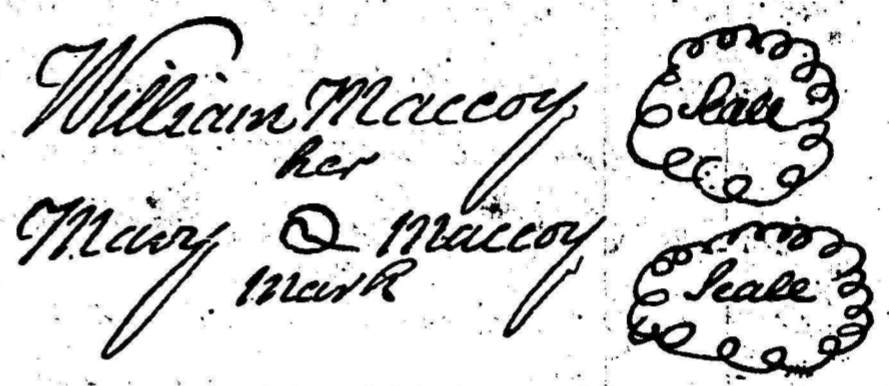 William Maccoy Seale
her
Mary Maccoy Seale
mark